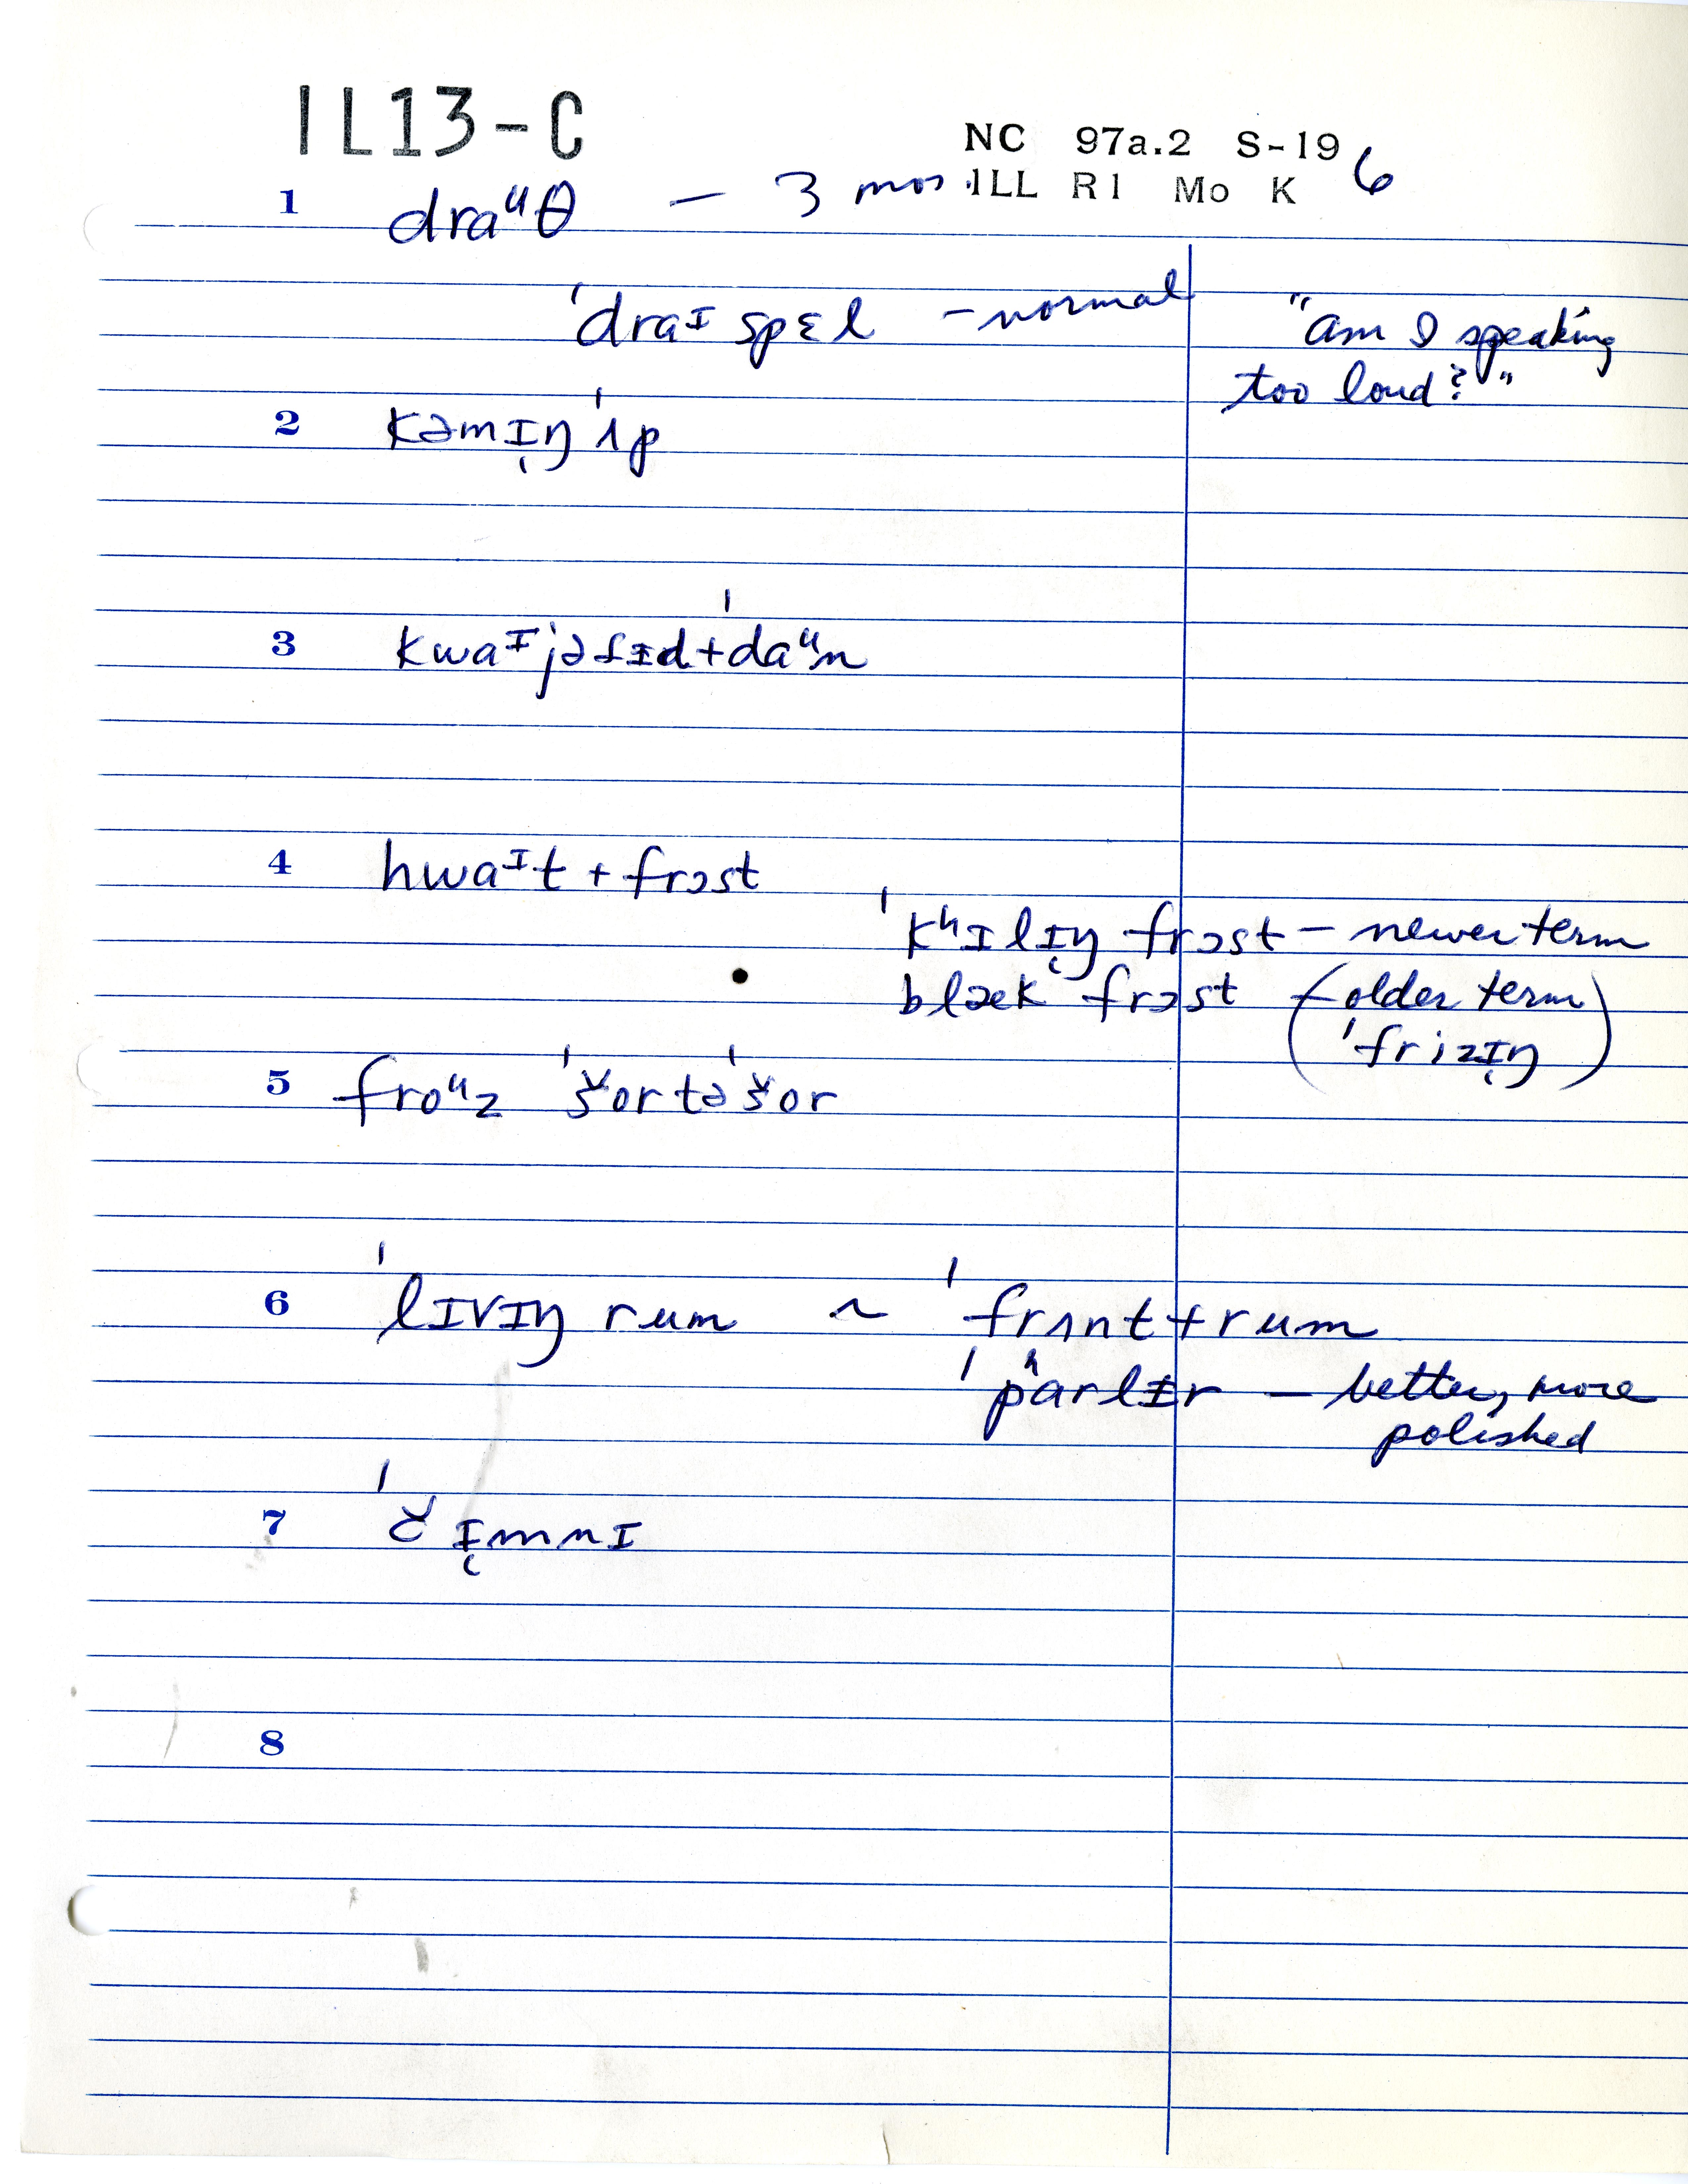 IL13-C
NC 97a.2 S-19 6
ILL R1 Mo K
1 draᶸθ — 3 mos.
ˈdraᶦ spɛl — normal
"am I speaking too loud?"
2 kəmɪ̨ŋ ˈʌp
3 kwaᶦjəfɪd+ˈdaᶸn
4 hwaᶦt + frɔst
ˈkʰɪlɪ̨ŋ frɔst — newer term
blæk frɔst (— older term
ˈfrizɪ̨ŋ)
5 froᶸz ˈšortəˈšor
6 ˈlɪvɪŋ rum ~ ˈfrʌnt+rum
ˈpʰarlɨr — better, more
polished
7 ˈčɪ̨mnɪ
8